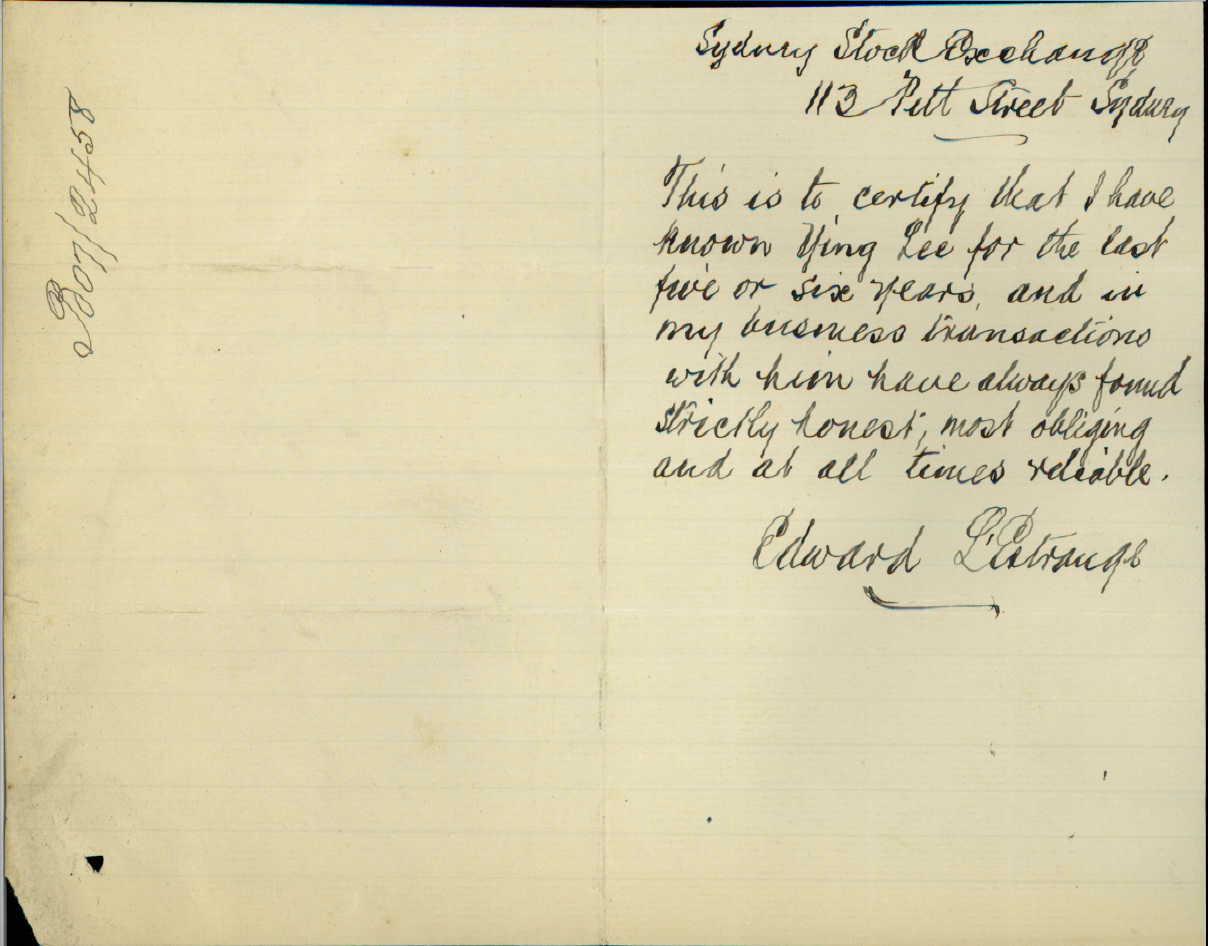 Sydney Stock Exchange
113 Pitt Street Sydney
This is to certify that I have
known Ying Lee for the last
five or six years, and in
my business transactions
with him have always found
strictly honest, most obliging
and at all times reliable.
Edward L'Estrange
07/2458